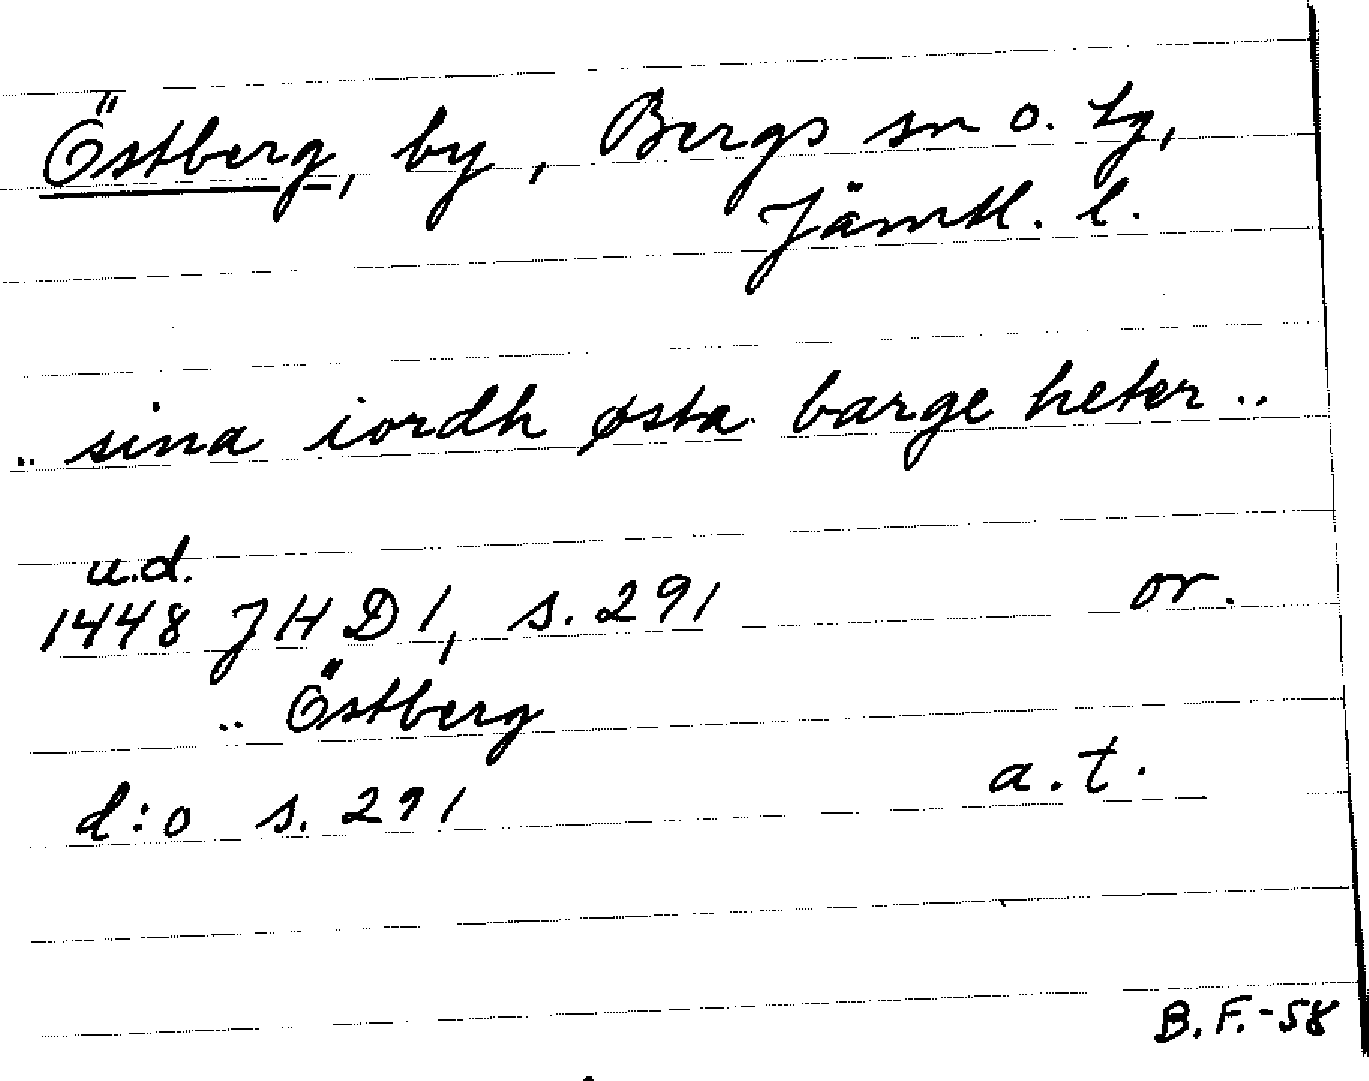 Östberg, by, Bergs sn o. tg,
Jämtl. l.
.. sina iordh østa barge heter ..
u.d.
1448 JHD 1, s. 291 or.
.. Östberg
d:o s. 291 a.t.
B.F.-58